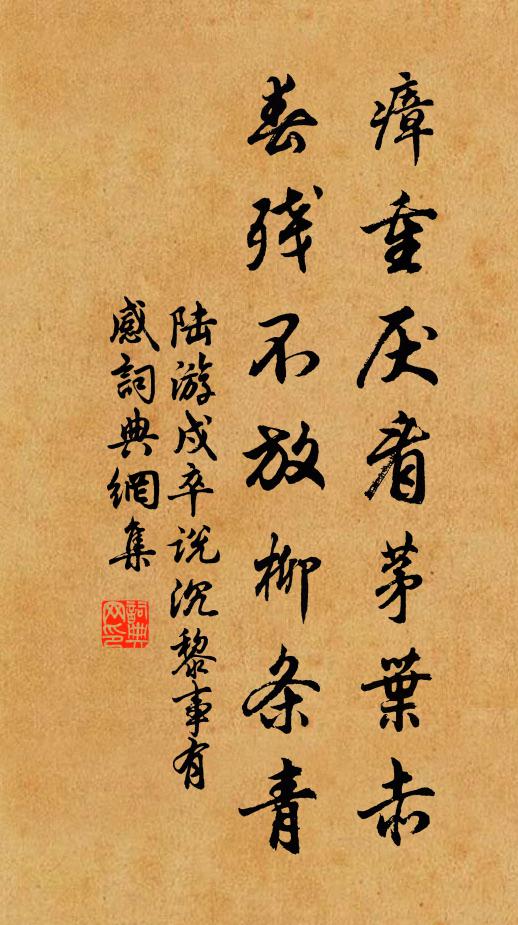 瘴重厌看茅葉赤
春残不放柳条青
陆游戍卒说沉黎事有
感詞典網集
詞典
网印